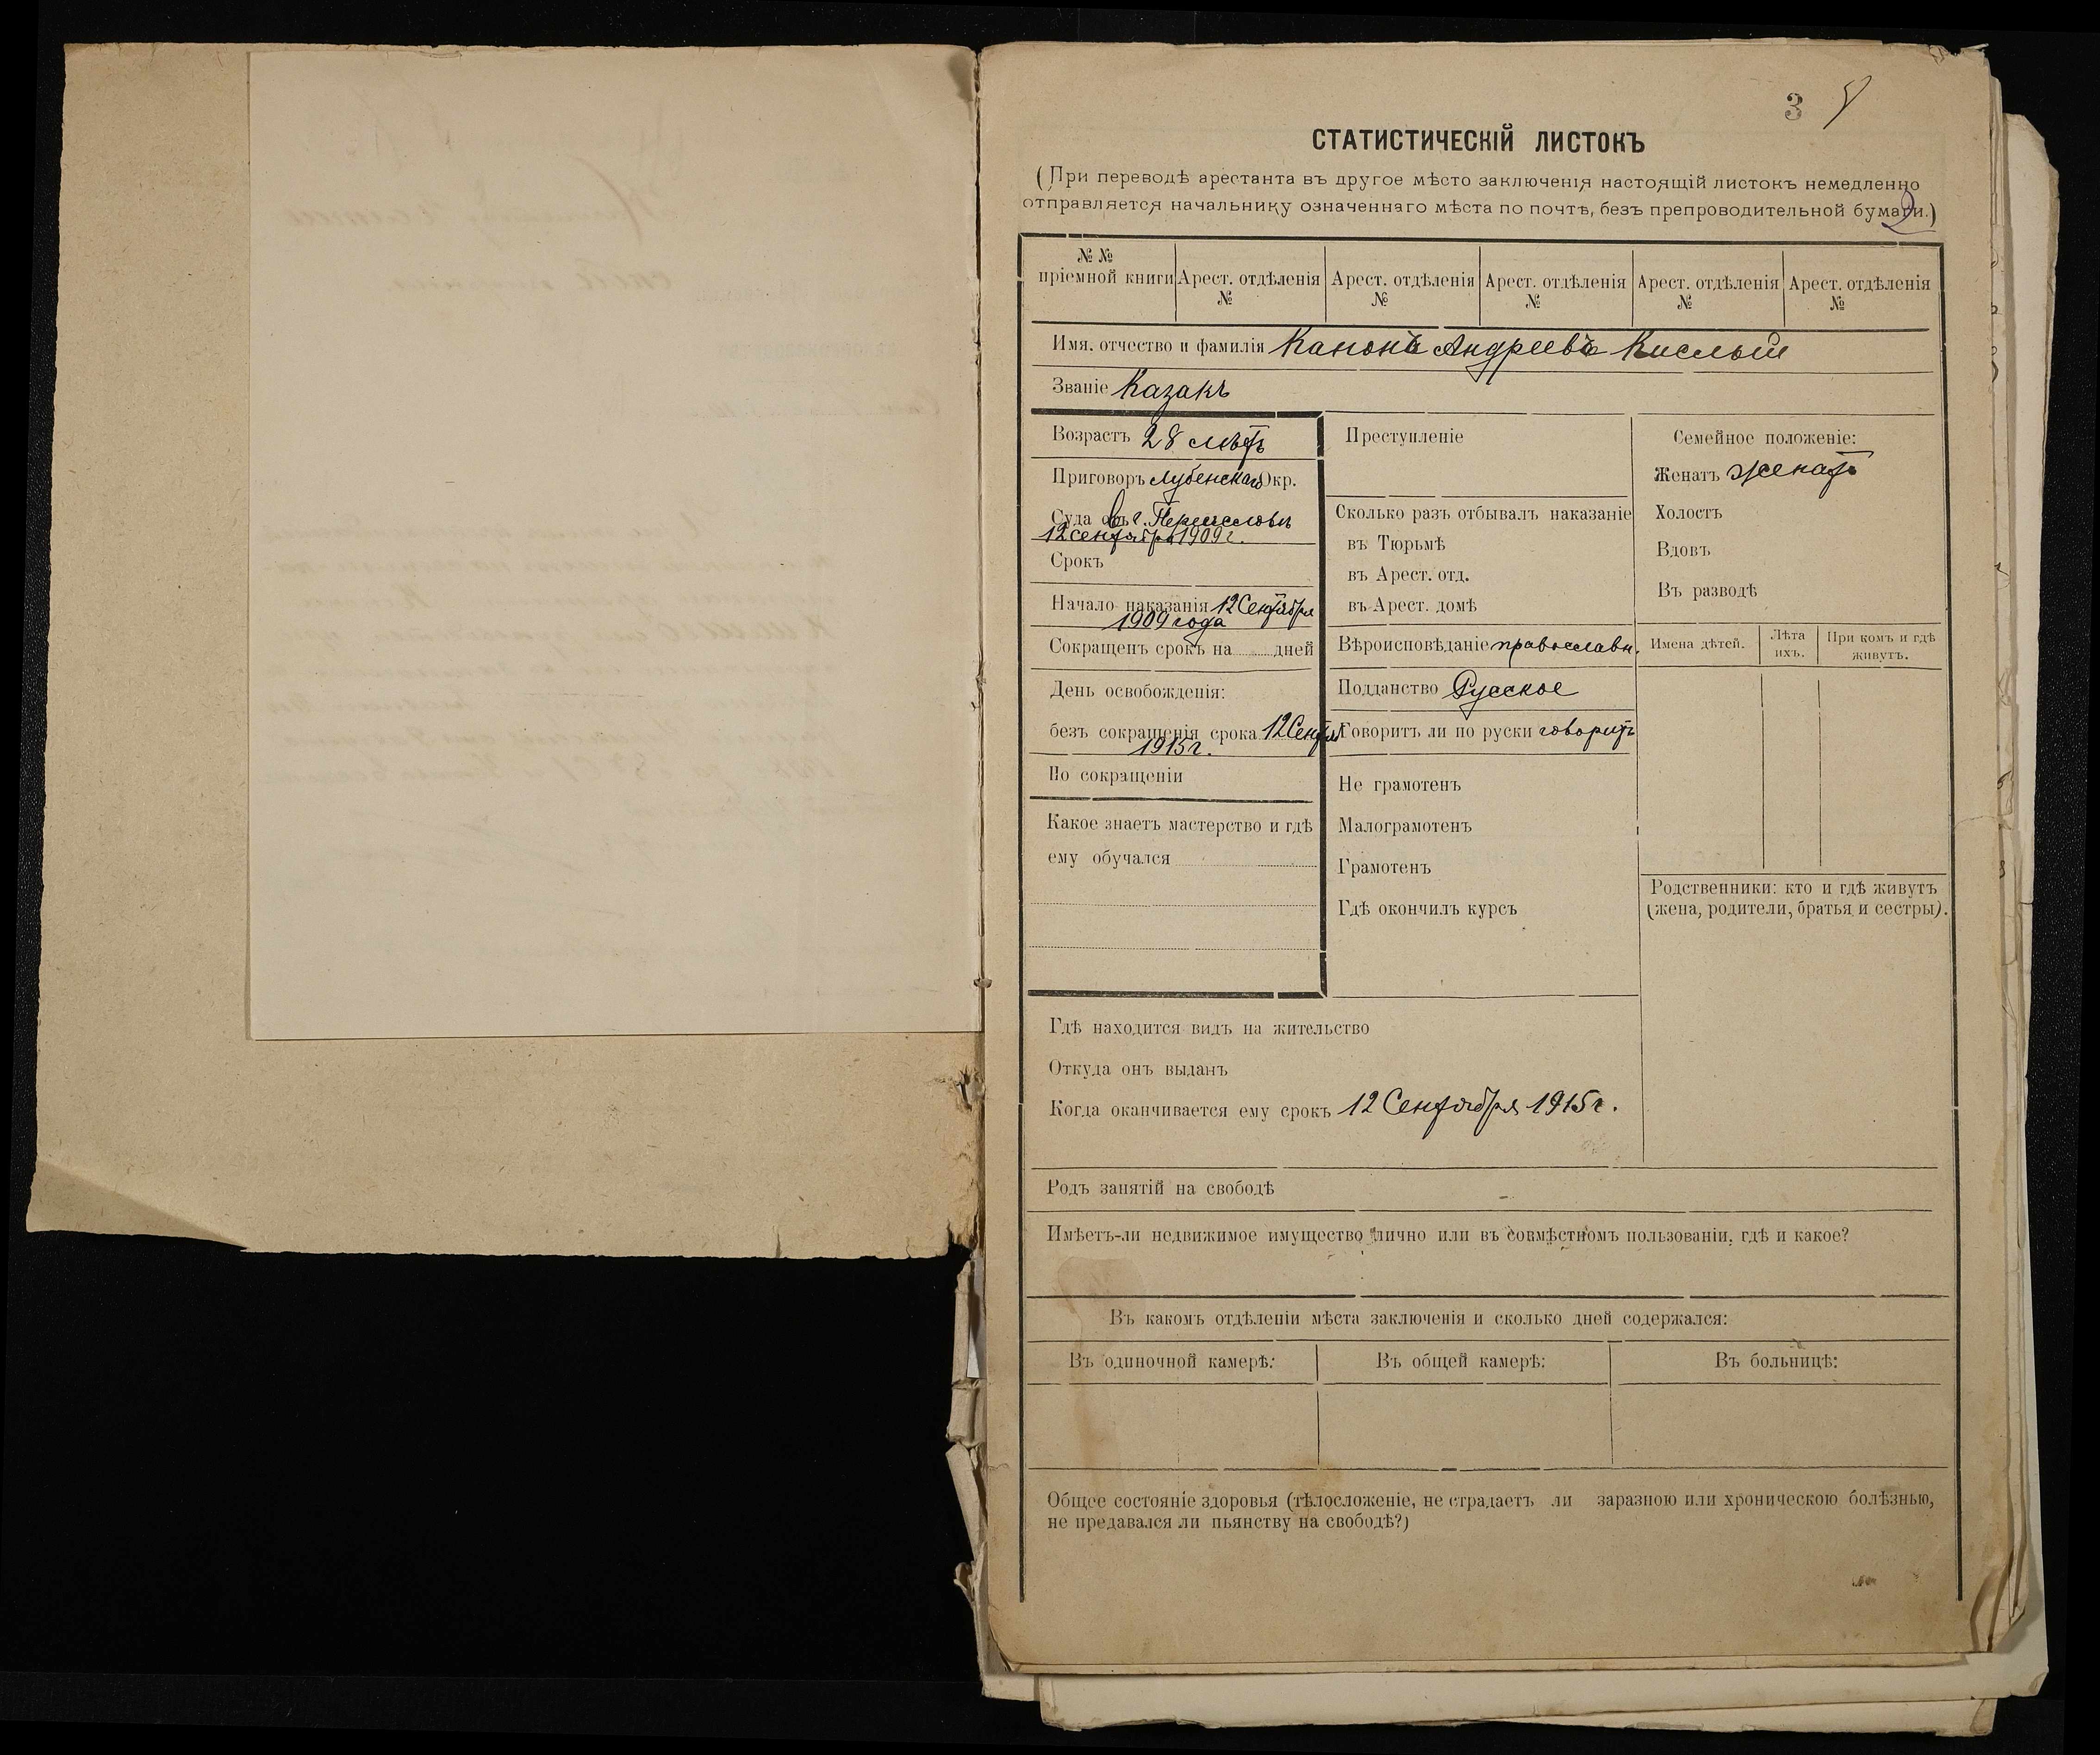 3
СТАТИСТИЧЕСКІЙ ЛИСТОКЪ
(При переводѣ арестанта въ другое мѣсто заключенія настоящій листокъ немедленно
отправляется начальнику означеннаго мѣста по почтѣ, безъ препроводительной бумаги.)
2
№ №
пріемной книги
Арест. отдѣленія
№
Арест. отдѣленія
№
Арест. отдѣленія
№
Арест. отдѣленія
№
Арест. отдѣленія
№
Имя, отчество и фамилія Канонъ Андреевъ Кислый
Званіе Казакъ
Возрастъ 28 лѣтъ
Приговоръ Лубенскаго Окр.
Суда въ г. Переяславѣ
12 сентября 1909 г.
Срокъ
Начало наказанія 12 Сентября
1909 года
Сокращенъ срокъ на дней
День освобожденія:
безъ сокращенія срока 12 Сентя
1915 г.
По сокращеніи
Какое знаетъ мастерство и гдѣ
ему обучался
Преступленіе
Сколько разъ отбывалъ наказаніе
въ Тюрьмѣ
въ Арест. отд.
въ Арест. домѣ
Вѣроисповѣданіе православн.
Подданство Русское
Говоритъ ли по руски говоритъ
Не грамотенъ
Малограмотенъ
Грамотенъ
Гдѣ окончилъ курсъ
Семейное положеніе:
Женатъ женатъ
Холостъ
Вдовъ
Въ разводѣ
Имена дѣтей.
Лѣта
ихъ.
При комъ и гдѣ
живутъ.
Родственники: кто и гдѣ живутъ
(жена, родители, братья и сестры).
Гдѣ находится видъ на жительство
Откуда онъ выданъ
Когда оканчивается ему срокъ 12 Сентября 1915 г.
Родъ занятій на свободѣ
Имѣетъ-ли недвижимое имущество лично или въ совмѣстномъ пользованіи, гдѣ и какое?
Въ какомъ отдѣленіи мѣста заключенія и сколько дней содержался:
Въ одиночной камерѣ:
Въ общей камерѣ:
Въ больницѣ:
Общее состояніе здоровья (тѣлосложеніе, не страдаетъ ли заразною или хроническою болѣзнью,
не предавался ли пьянству на свободѣ?)